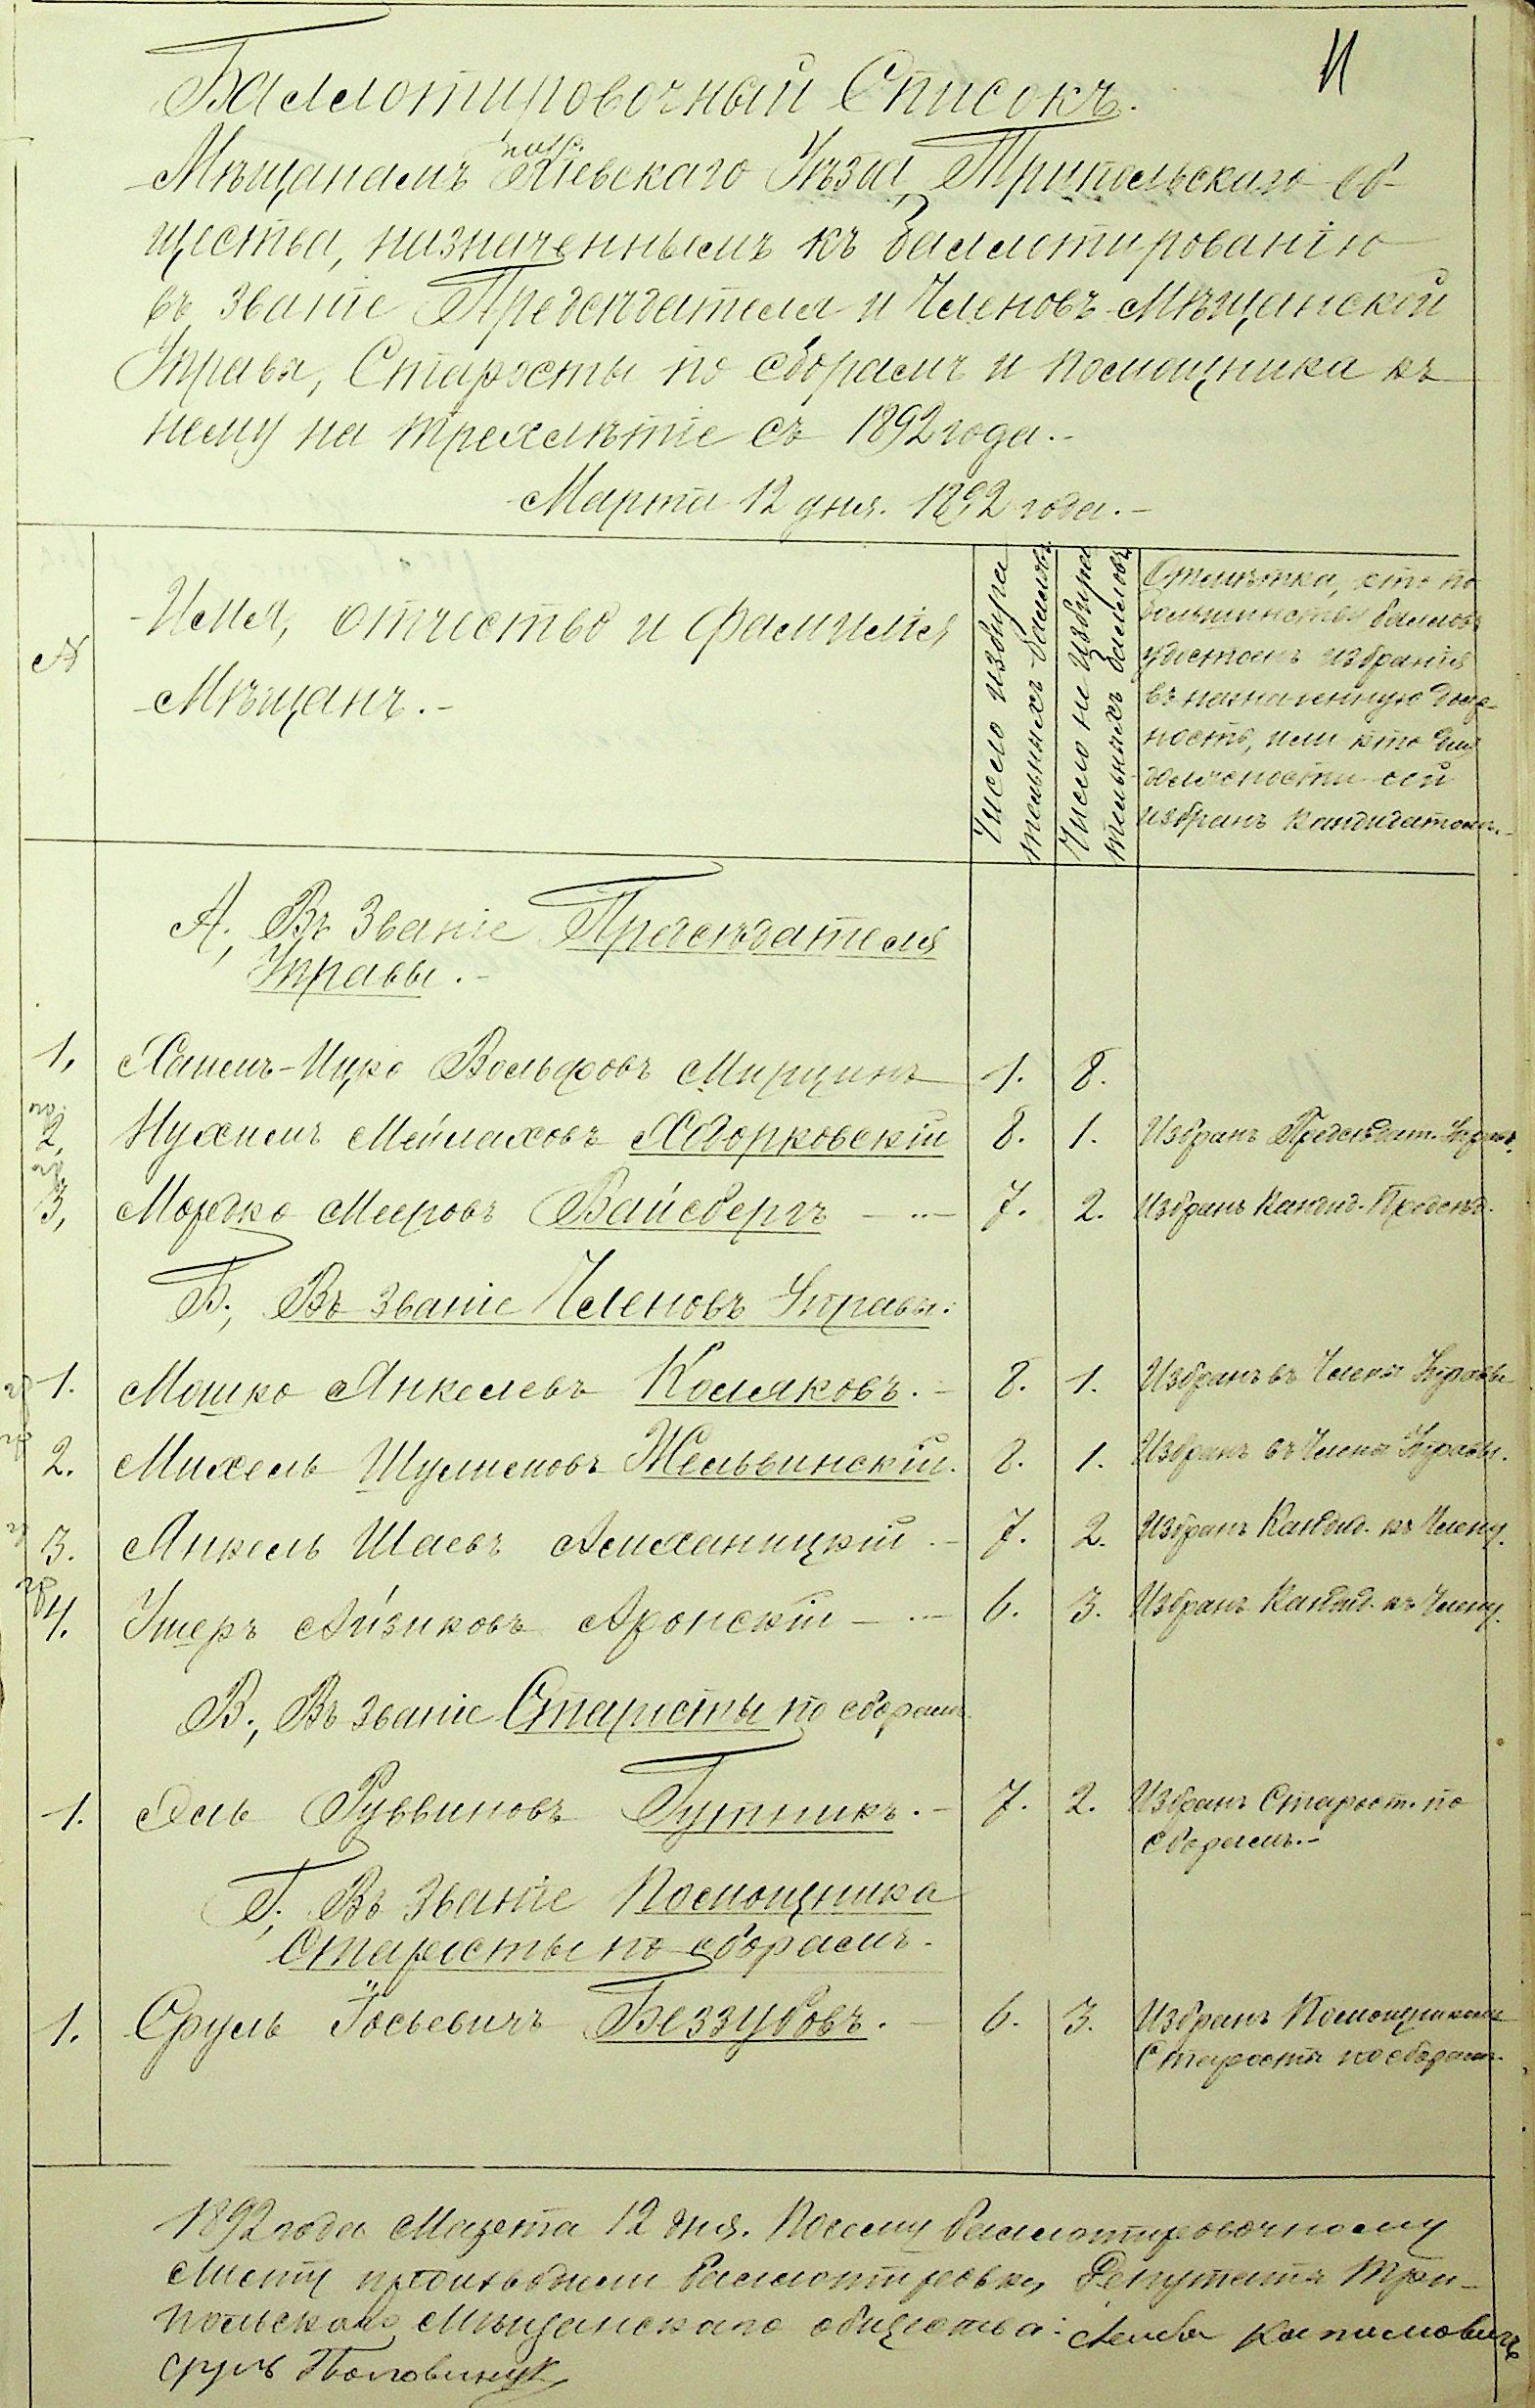 11
Баллотировочный Списокъ.
Мѣщанамъ Кіевскаго Уѣзда, Трипольскаго об-
щества, назначеннымъ къ баллотированію
въ званіе Предсѣдателя и Членовъ Мѣщанской
Управы, Старосты по сборамъ и помощника къ
нему на трехлѣтіе съ 1892 года.-
Марта 12 дня. 1892 года.-
№
Имя, отчество и фамилія
Мѣщанъ.-
Число избира
тельныхъ балловъ
Число не избира
тельныхъ балловъ
Отмѣтка, кто по
большинству балловъ
удостоенъ избранія
въ назначенную долж-
ность, или кто для
должности сей
избранъ кандидатомъ.-
А, Въ Званіе Предсѣдателя
Управы.-
1, Хаимъ-Ицко Вольфовъ Мирцинъ 1. 8.
2, Нухимъ Мейлаховъ Ходорковскій 8. 1. Избранъ Предсѣдат. Управ.
3, Мордко Мееровъ Вайсбергъ 7. 2. Избранъ Кандид. Предсѣд.
Б, Въ званіе Членовъ Управы.
1. Мошко Янкелевъ Коляковъ.- 8. 1. Избранъ въ Члены Управы
2. Михель Шулимовъ Жельвинскій. 8. 1. Избранъ въ Члены Управы.
3. Янкель Шаевъ Амханицкій.- 7. 2. Избранъ Кандид. къ Члену.
4. Ушеръ Айзиковъ Аронскій 6. 3. Избранъ Кандид. къ Члену.
В, Въ званіе Старосты по сборамъ.
1. Эль Руввиновъ Гутникъ.- 7. 2. Избранъ Старост. по
сборамъ.-
Г, Въ Званіе Помощника
Старосты по сборамъ.
1. Сруль Іосьевичъ Беззубовъ.- 6. 3. Избранъ Помощникомъ
Старосты по сборам.
1892 года Марта 12 дня. По сему баллотировочному
листу производили баллотировку, Депутаты Три-
польскаго Мѣщанскаго общества: Лейба Капиловичъ
сруль Половинчук